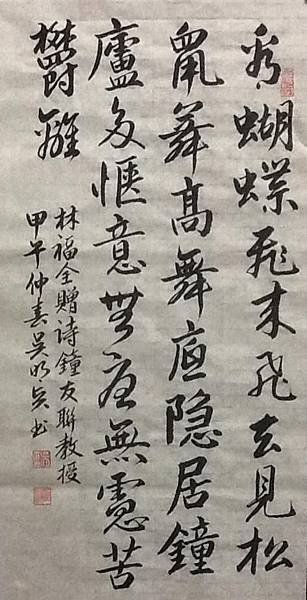 看蝴蝶飛來飛去見松
鼠舞高舞隐居鐘
廬多愜意無無慮苦
鬱離
林福全贈诗鐘友聯教授
甲午仲春吴明书